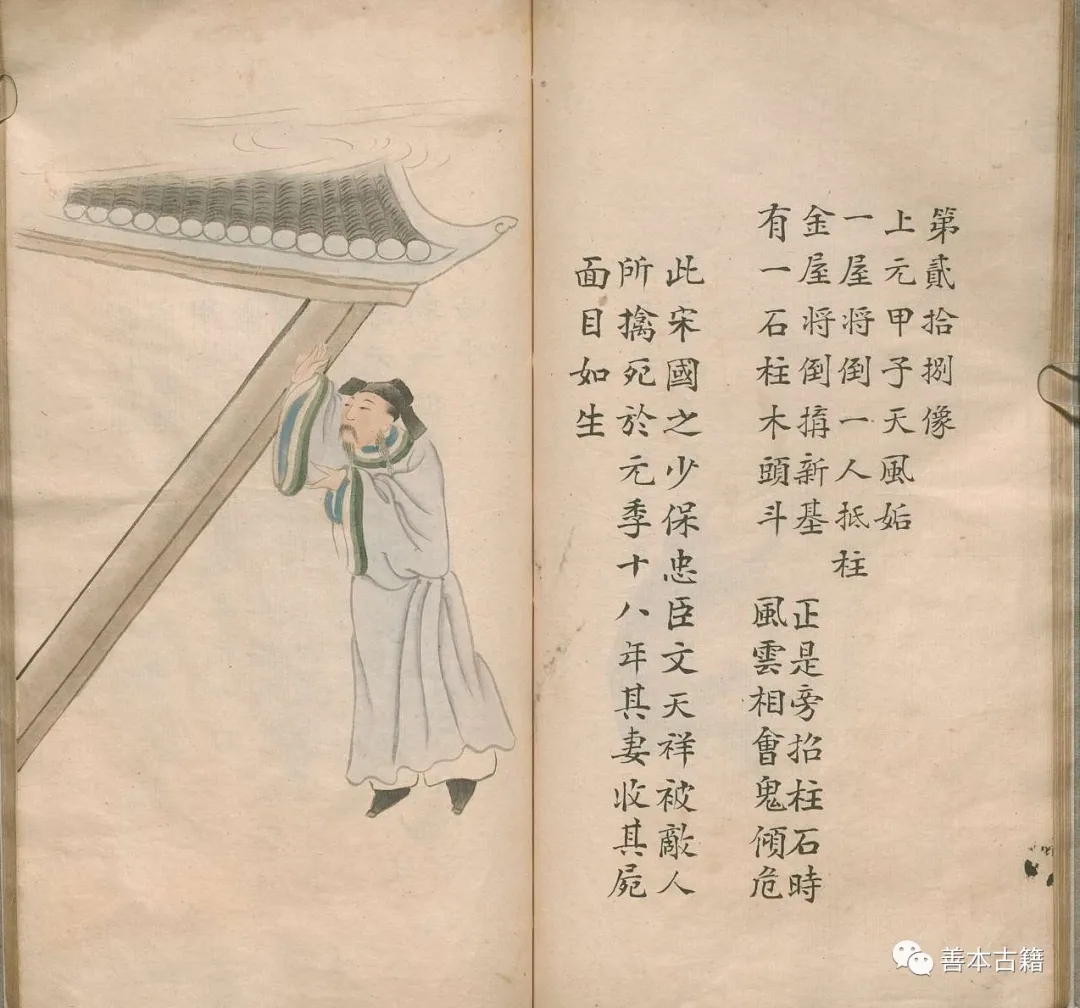 第貳拾捌像
上元甲子天風姤
一屋將倒一人抵柱
金屋將倒揹新基 正是旁招柱石時
有一石柱木頭斗 風雲相會鬼傾危
此宋國之少保忠臣文天祥被敵人
所擒死於元季十八年其妻收其屍
面目如生
善本古籍